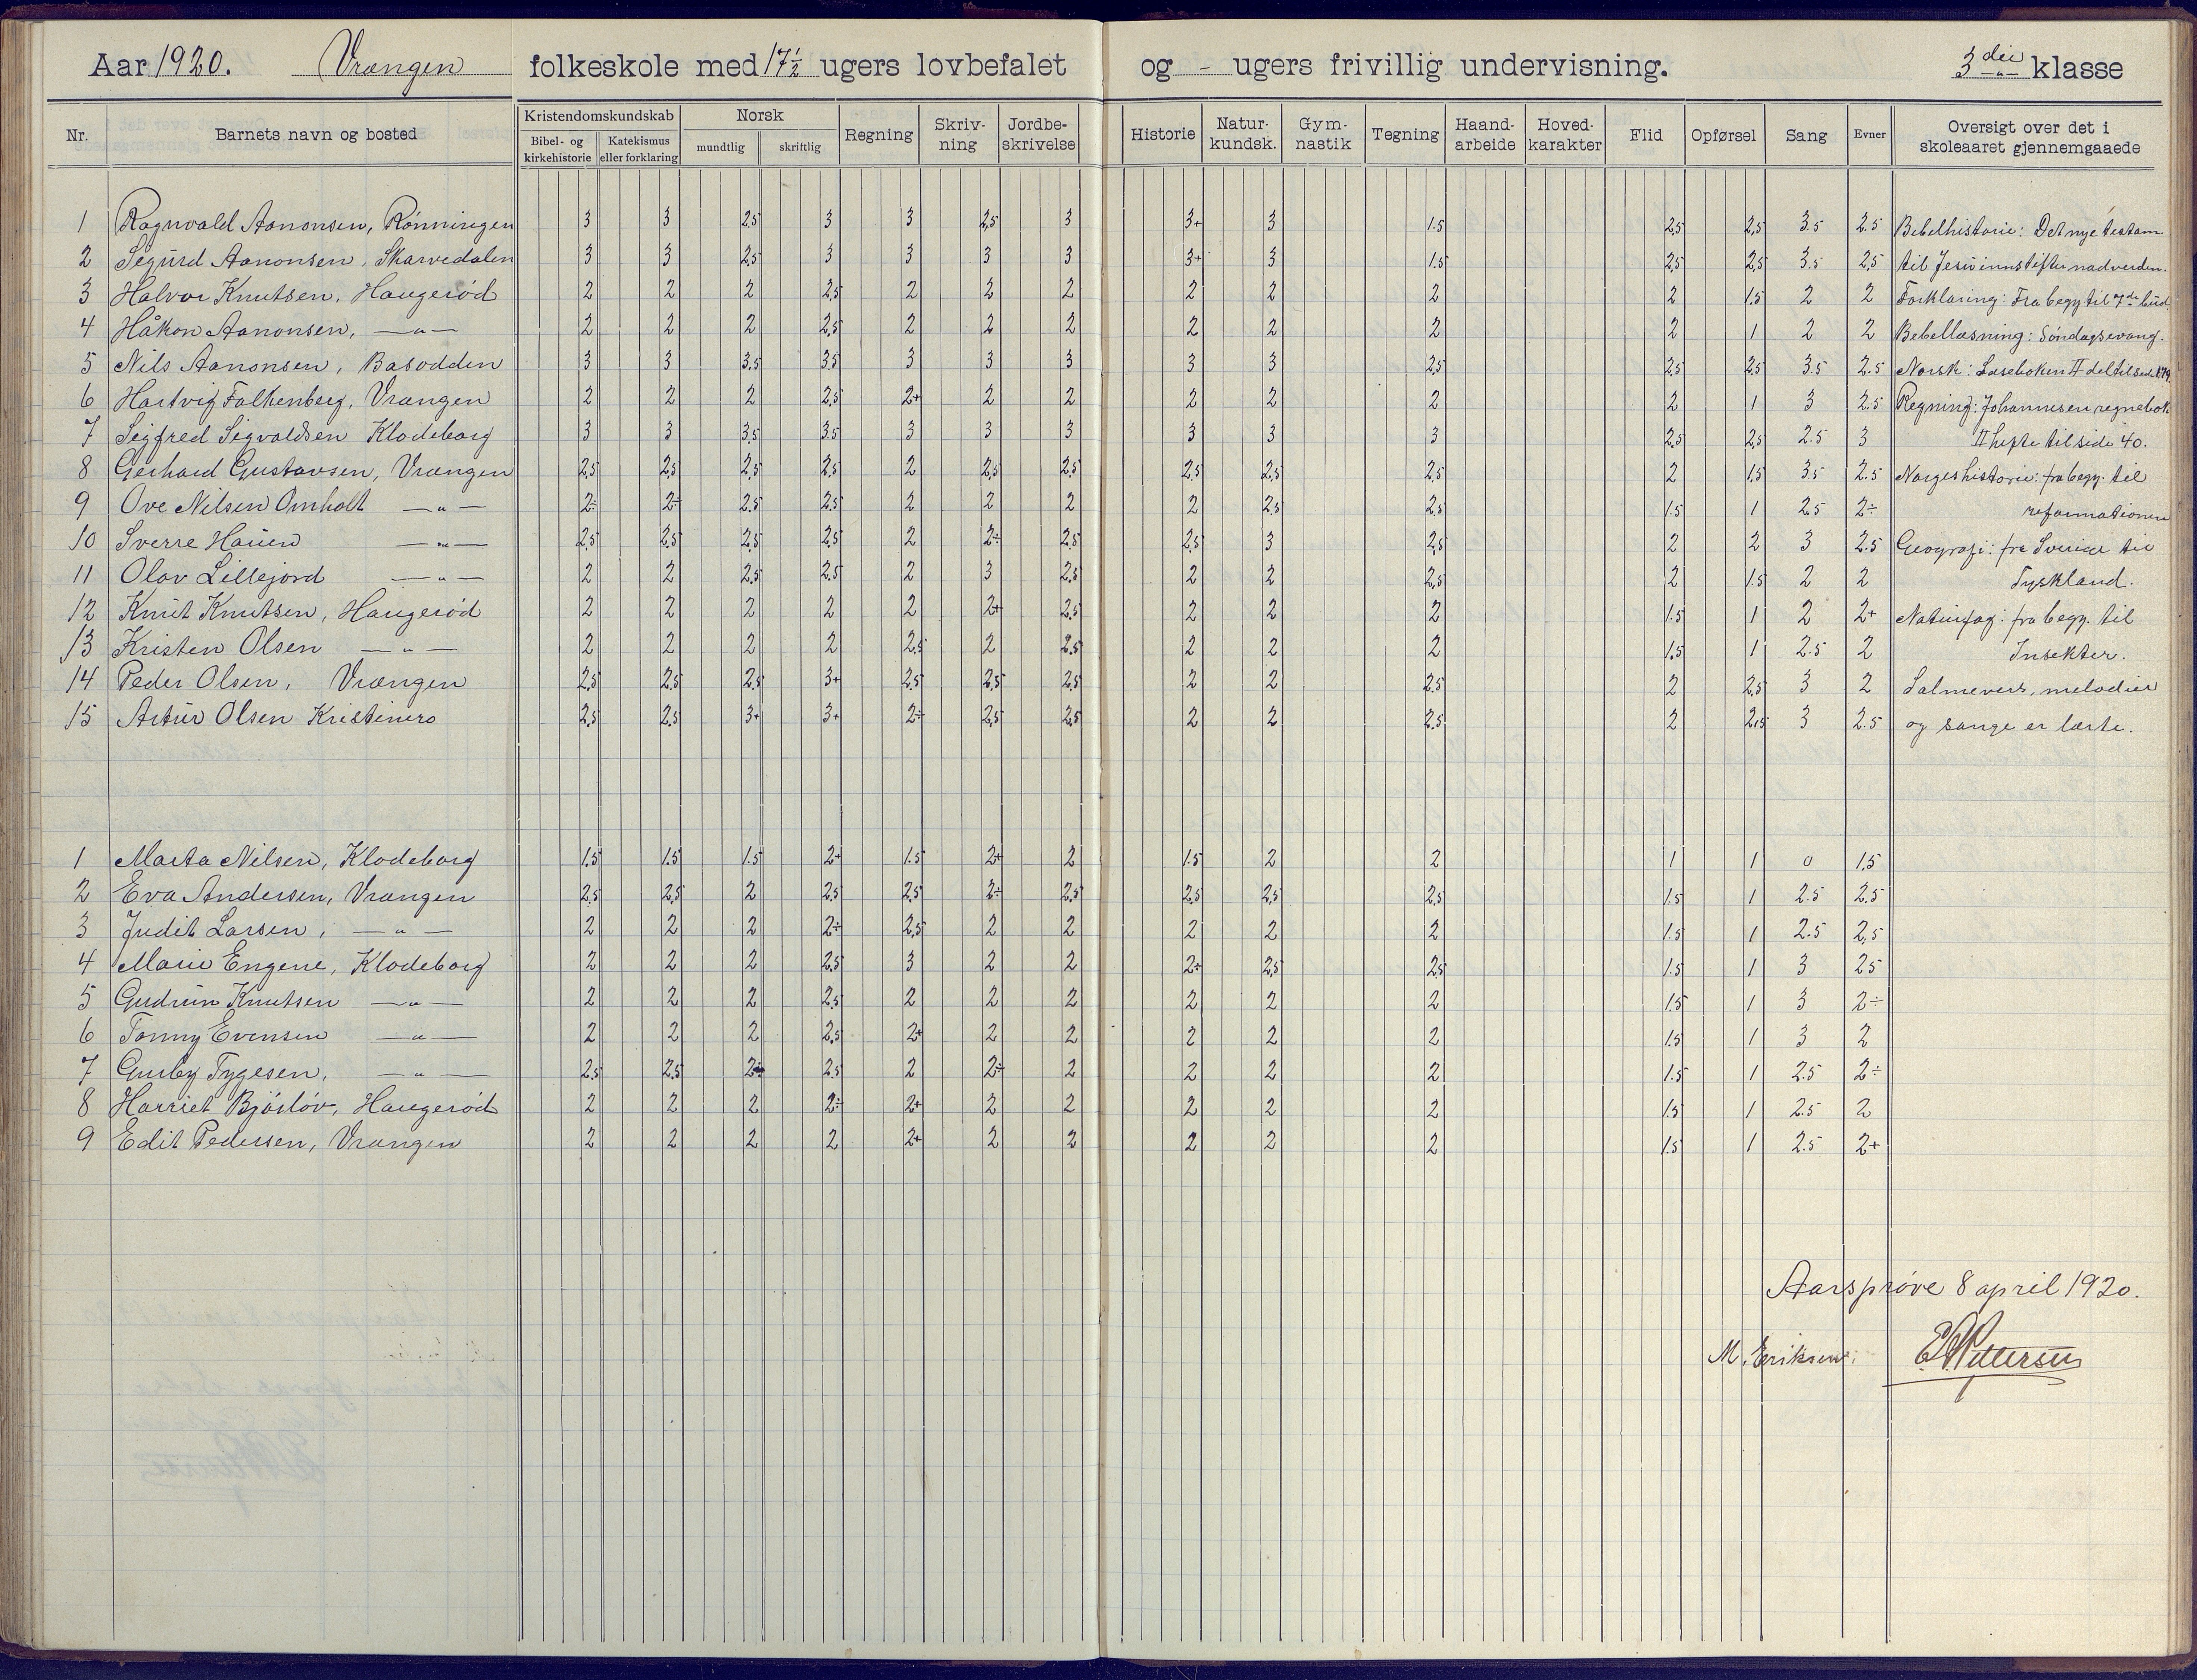 Aar 1920. Vrængen folkeskole med 17½ ugers lovbefalet og - ugers frivillig undervisning. 3die klasse
Nr. Barnets navn og bosted Kristendomskundskab Bibel- og kirkehistorie Katekismus eller forklaring Norsk mundtlig skriftlig Regning Skriv-ning Jordbe-skrivelse Historie Natur-kundsk. Gym-nastik Tegning Haand-arbeide Hoved-karakter Flid Opførsel Sang Evner Oversigt over det i skoleaaret gjennemgaaede
1 Ragnvald Aanonsen, Rönningen 3 3 2,5 3 3 2,5 3 3+ 3 1.5 2,5 2,5 3.5 2.5 Bibelhistorie: Det nye testam.
2 Sigurd Aanonsen, Skarvedalen 3 3 2,5 3 3 3 3 3+ 3 1.5 2,5 2,5 3.5 2,5 til Jesu innstifter nadverden.
3 Halvor Knutsen, Haugerød 2 2 2 2,5 2 2 2 2 2 2 2 1.5 2 2 Forklaring: Fra begy til 7de bud.
4 Håkon Aanonsen, —"— 2 2 2 2,5 2 2 2 2 2 2 2 1 2 2 Bebellæsning: Søndagsevang.
5 Nils Aanonsen, Basodden 3 3 3.5 3.5 3 3 3 3 3 2,5 2,5 2,5 3.5 2.5 Norsk: Læseboken II del til side 179.
6 Hartvig Falkenberg, Vrængen 2 2 2 2,5 2+ 2 2 2 2 2 2 1 3 2.5 Regning: Johannesen regnebok
7 Sigfred Sigvaldsen Klodeborg 3 3 3.5 3.5 3 3 3 3 3 3 2,5 2,5 2.5 3 II hefte til side 40.
8 Gerhard Gustavsen, Vrængen 2,5 2,5 2,5 2,5 2 2,5 2,5 2,5 2,5 2,5 2 1.5 3.5 2.5 Norgeshistorie: fra begy. til
9 Ove Nilsen Omholt —"— 2÷ 2÷ 2.5 2.5 2 2 2 2 2,5 2,5 1.5 1 2.5 2÷ reformationen
10 Sverre Hauen —"— 2,5 2,5 2,5 2,5 2 2÷ 2,5 2,5 3 2,5 2 2 3 2.5 Geografi: fra Sverige til
11 Olav Lillejord —"— 2 2 2,5 2.5 2 3 2,5 2 2 2,5 2 1.5 2 2 Tyskland.
12 Knut Knutsen, Haugerød 2 2 2 2 2 2+ 2,5 2 2 2 1.5 1 2 2+ Naturfag: fra begy. til
13 Kristen Olsen —"— 2 2 2 2 2,5 2 2,5 2 2 2 1.5 1 2.5 2 Insekter.
14 Peder Olsen, Vrængen 2,5 2,5 2,5 3+ 2,5 2,5 2,5 2 2 2.5 2 2,5 3 2 Salmevers, melodier
15 Artur Olsen Kristinero 2,5 2,5 3+ 3+ 2÷ 2,5 2,5 2 2 2.5 2 2,5 3 2.5 og sange er lærte.
1 Marta Nilsen, Klodeborg 1.5 1.5 1.5 2+ 1.5 2+ 2 1.5 2 2 1 1 0 1,5
2 Eva Andersen, Vrængen 2,5 2,5 2 2,5 2,5 2÷ 2,5 2,5 2,5 2,5 1.5 1 2.5 2.5
3 Judit Larsen, —"— 2 2 2 2÷ 2,5 2 2 2 2 2 1.5 1 2.5 2,5
4 Marie Engene, Klodeborg 2 2 2 2,5 3 2 2 2÷ 2,5 2,5 1.5 1 3 2.5
5 Gudrun Knutsen —"— 2 2 2 2,5 2 2 2 2 2 2 1.5 1 3 2÷
6 Tonny Evensen —"— 2 2 2 2,5 2+ 2 2 2 2 2 1.5 1 3 2
7 Tygesen, —"— 2,5 2,5 2÷ 2.5 2 2÷ 2 2 2 2 1.5 1 2.5 2÷
8 Harriet Bjórlöv, Haugerød 2 2 2 2÷ 2+ 2 2 2 2 2 1.5 1 2.5 2
9 Edit Pedersen, Vrængen 2 2 2 2 2+ 2 2 2 2 2 1.5 1 2.5 2+
Aarsprøve 8 april 1920.
M. Eriksen. Pettersen